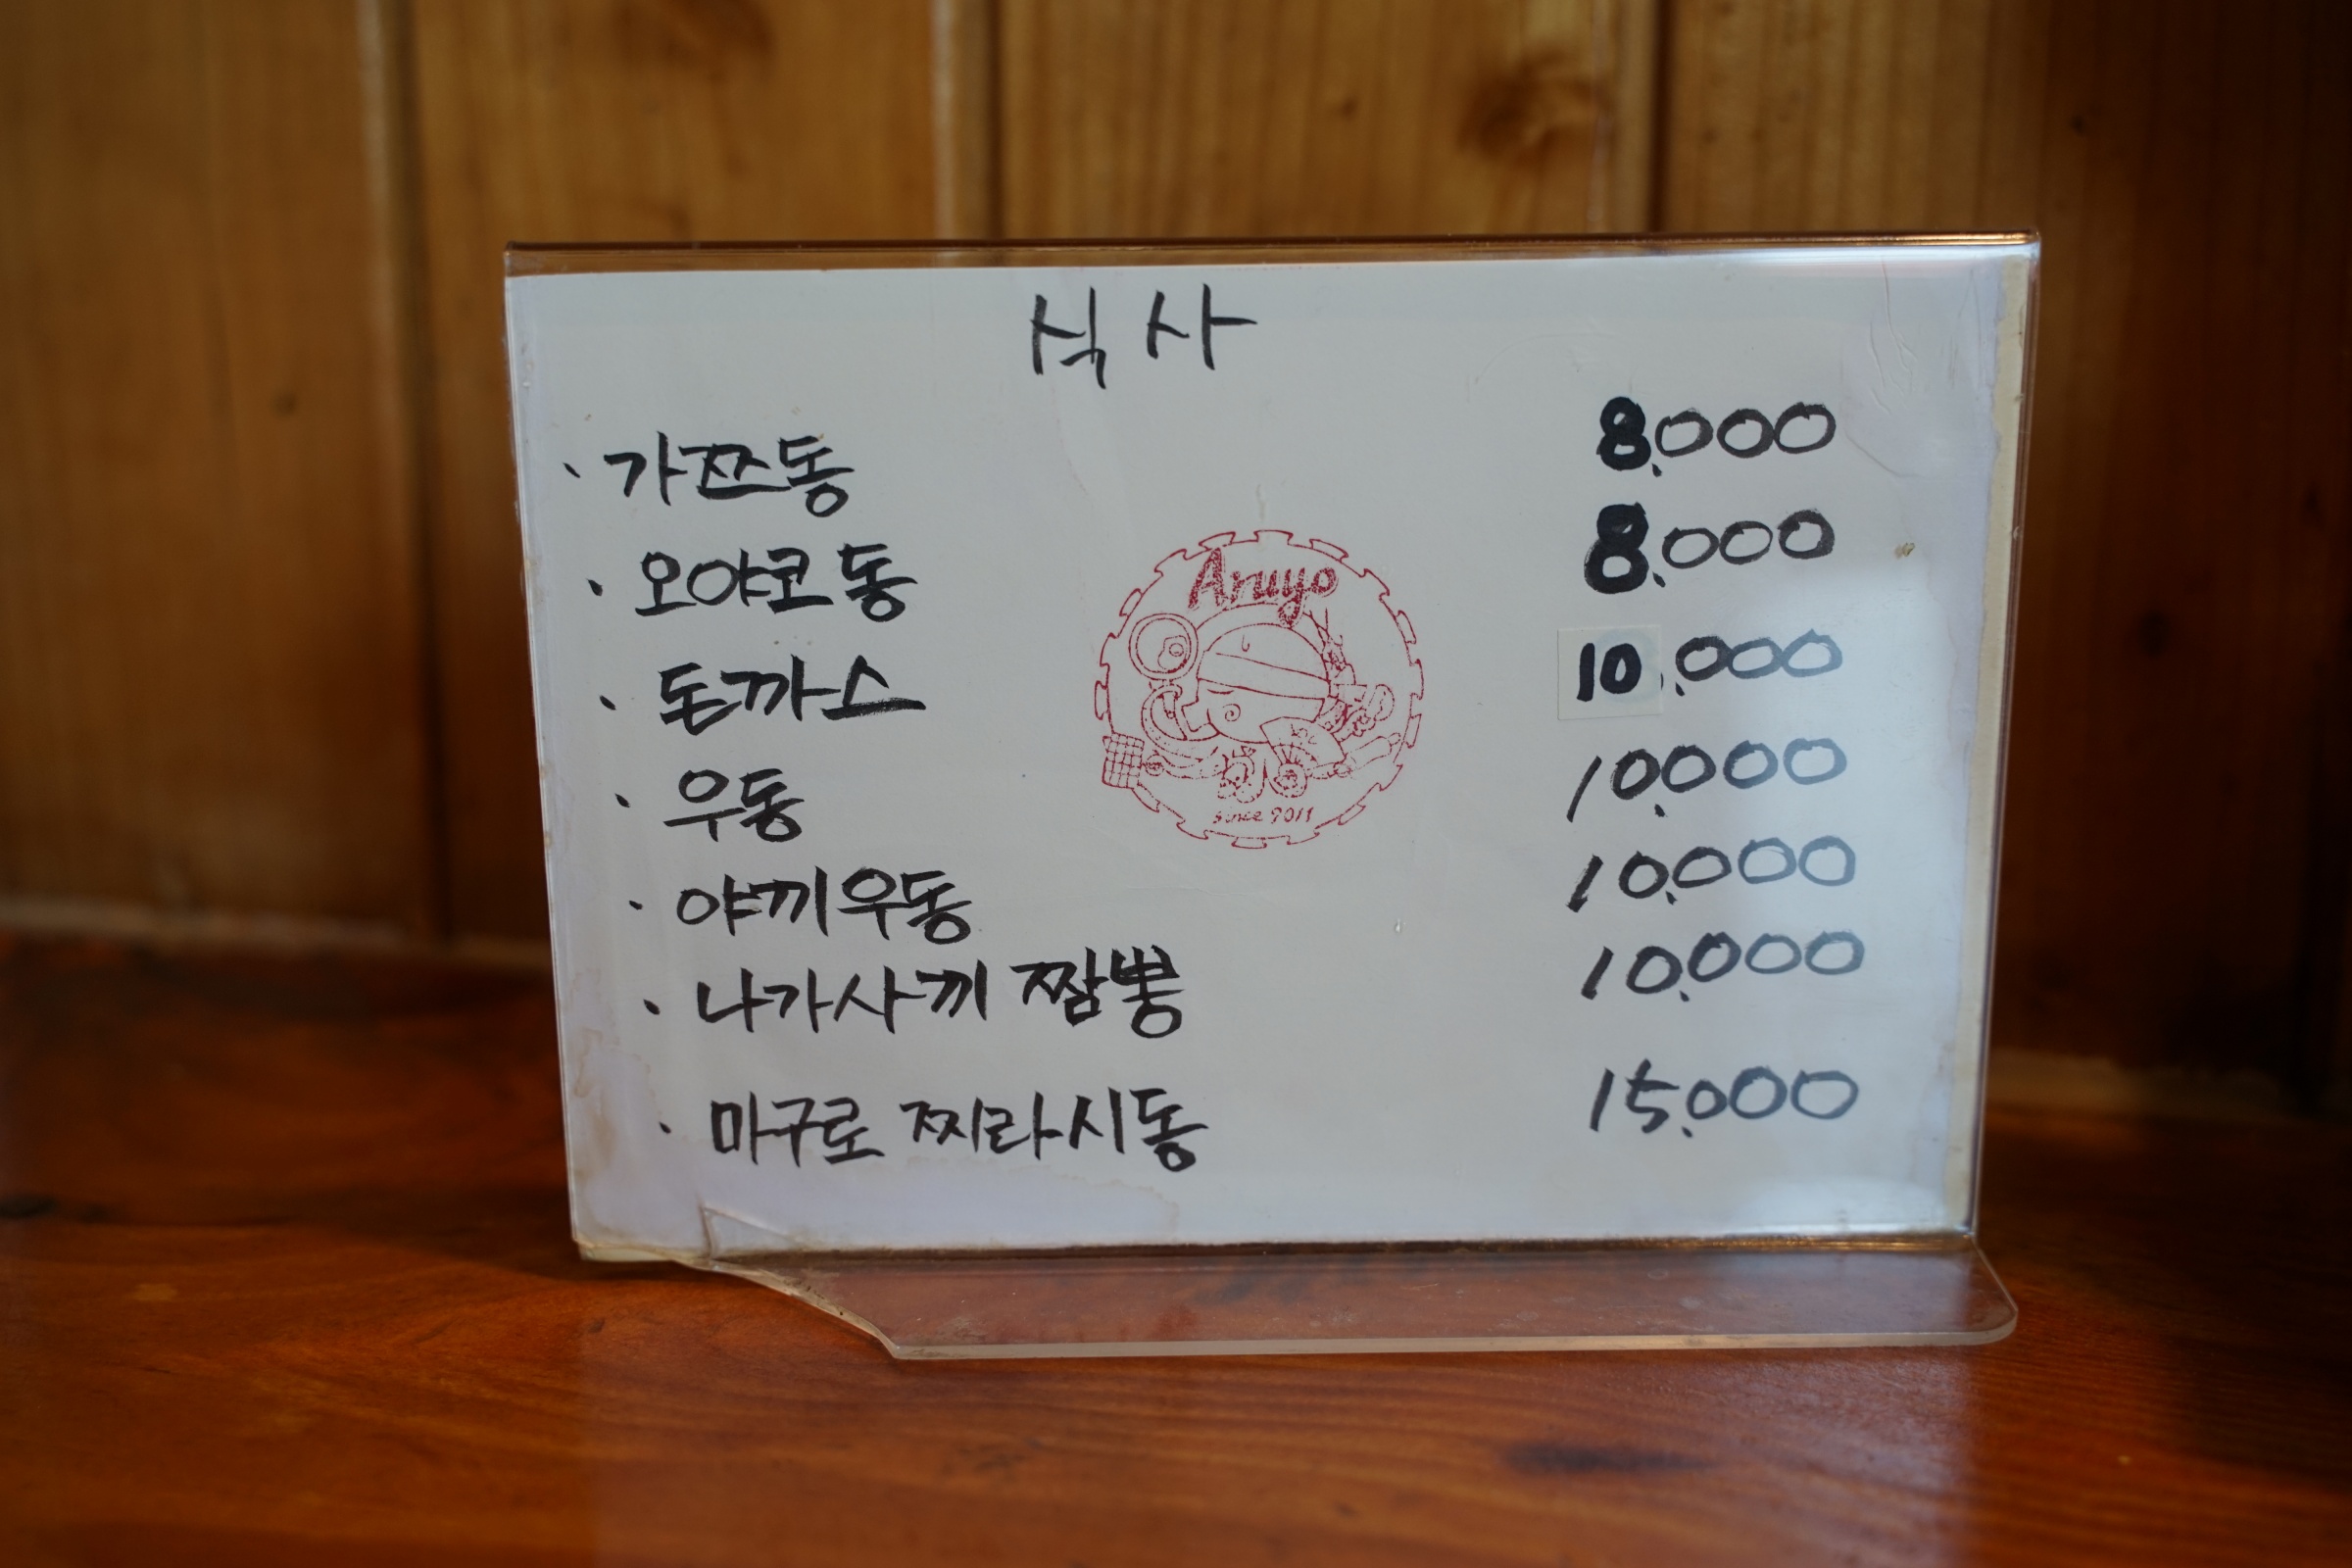 식사
· 가쯔동 8,000
· 오야코동 8,000
· 돈까스 10,000
· 우동 10,000
· 야끼우동 10,000
· 나가사끼 짬뽕 10,000
· 마구로 찌라시동 15,000
Aruyo
since 2011